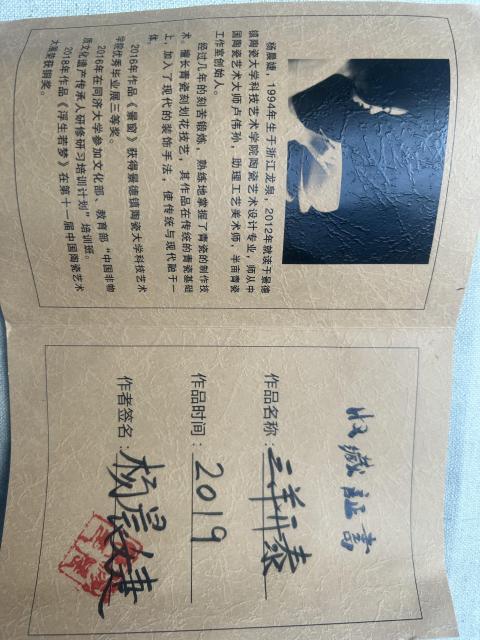 杨晨婕，1994年生于浙江龙泉，2012年就读于景德
镇陶瓷大学科技艺术学院陶瓷艺术设计专业，师从中
国陶瓷艺术大师卢伟孙，助理工艺美术师，半亩青瓷
工作室创始人。
经过几年的刻苦锻炼，熟练地掌握了青瓷的制作技
术，擅长青瓷刻划花技艺，其作品在传统的青瓷基础
上，加入了现代的装饰手法，使传统与现代融于一
体。
2016年作品《景窗》获得景德镇陶瓷大学科技艺术
学院优秀毕业展三等奖。
2016年在同济大学参加文化部、教育部“中国非物
质文化遗产传承人研修研习培训计划”培训班。
2018年作品《浮生若梦》在第十一届中国陶瓷艺术
大展荣获铜奖。
收藏証書
作品名称：三羊开泰
作品时间：2019
作者签名：杨晨婕